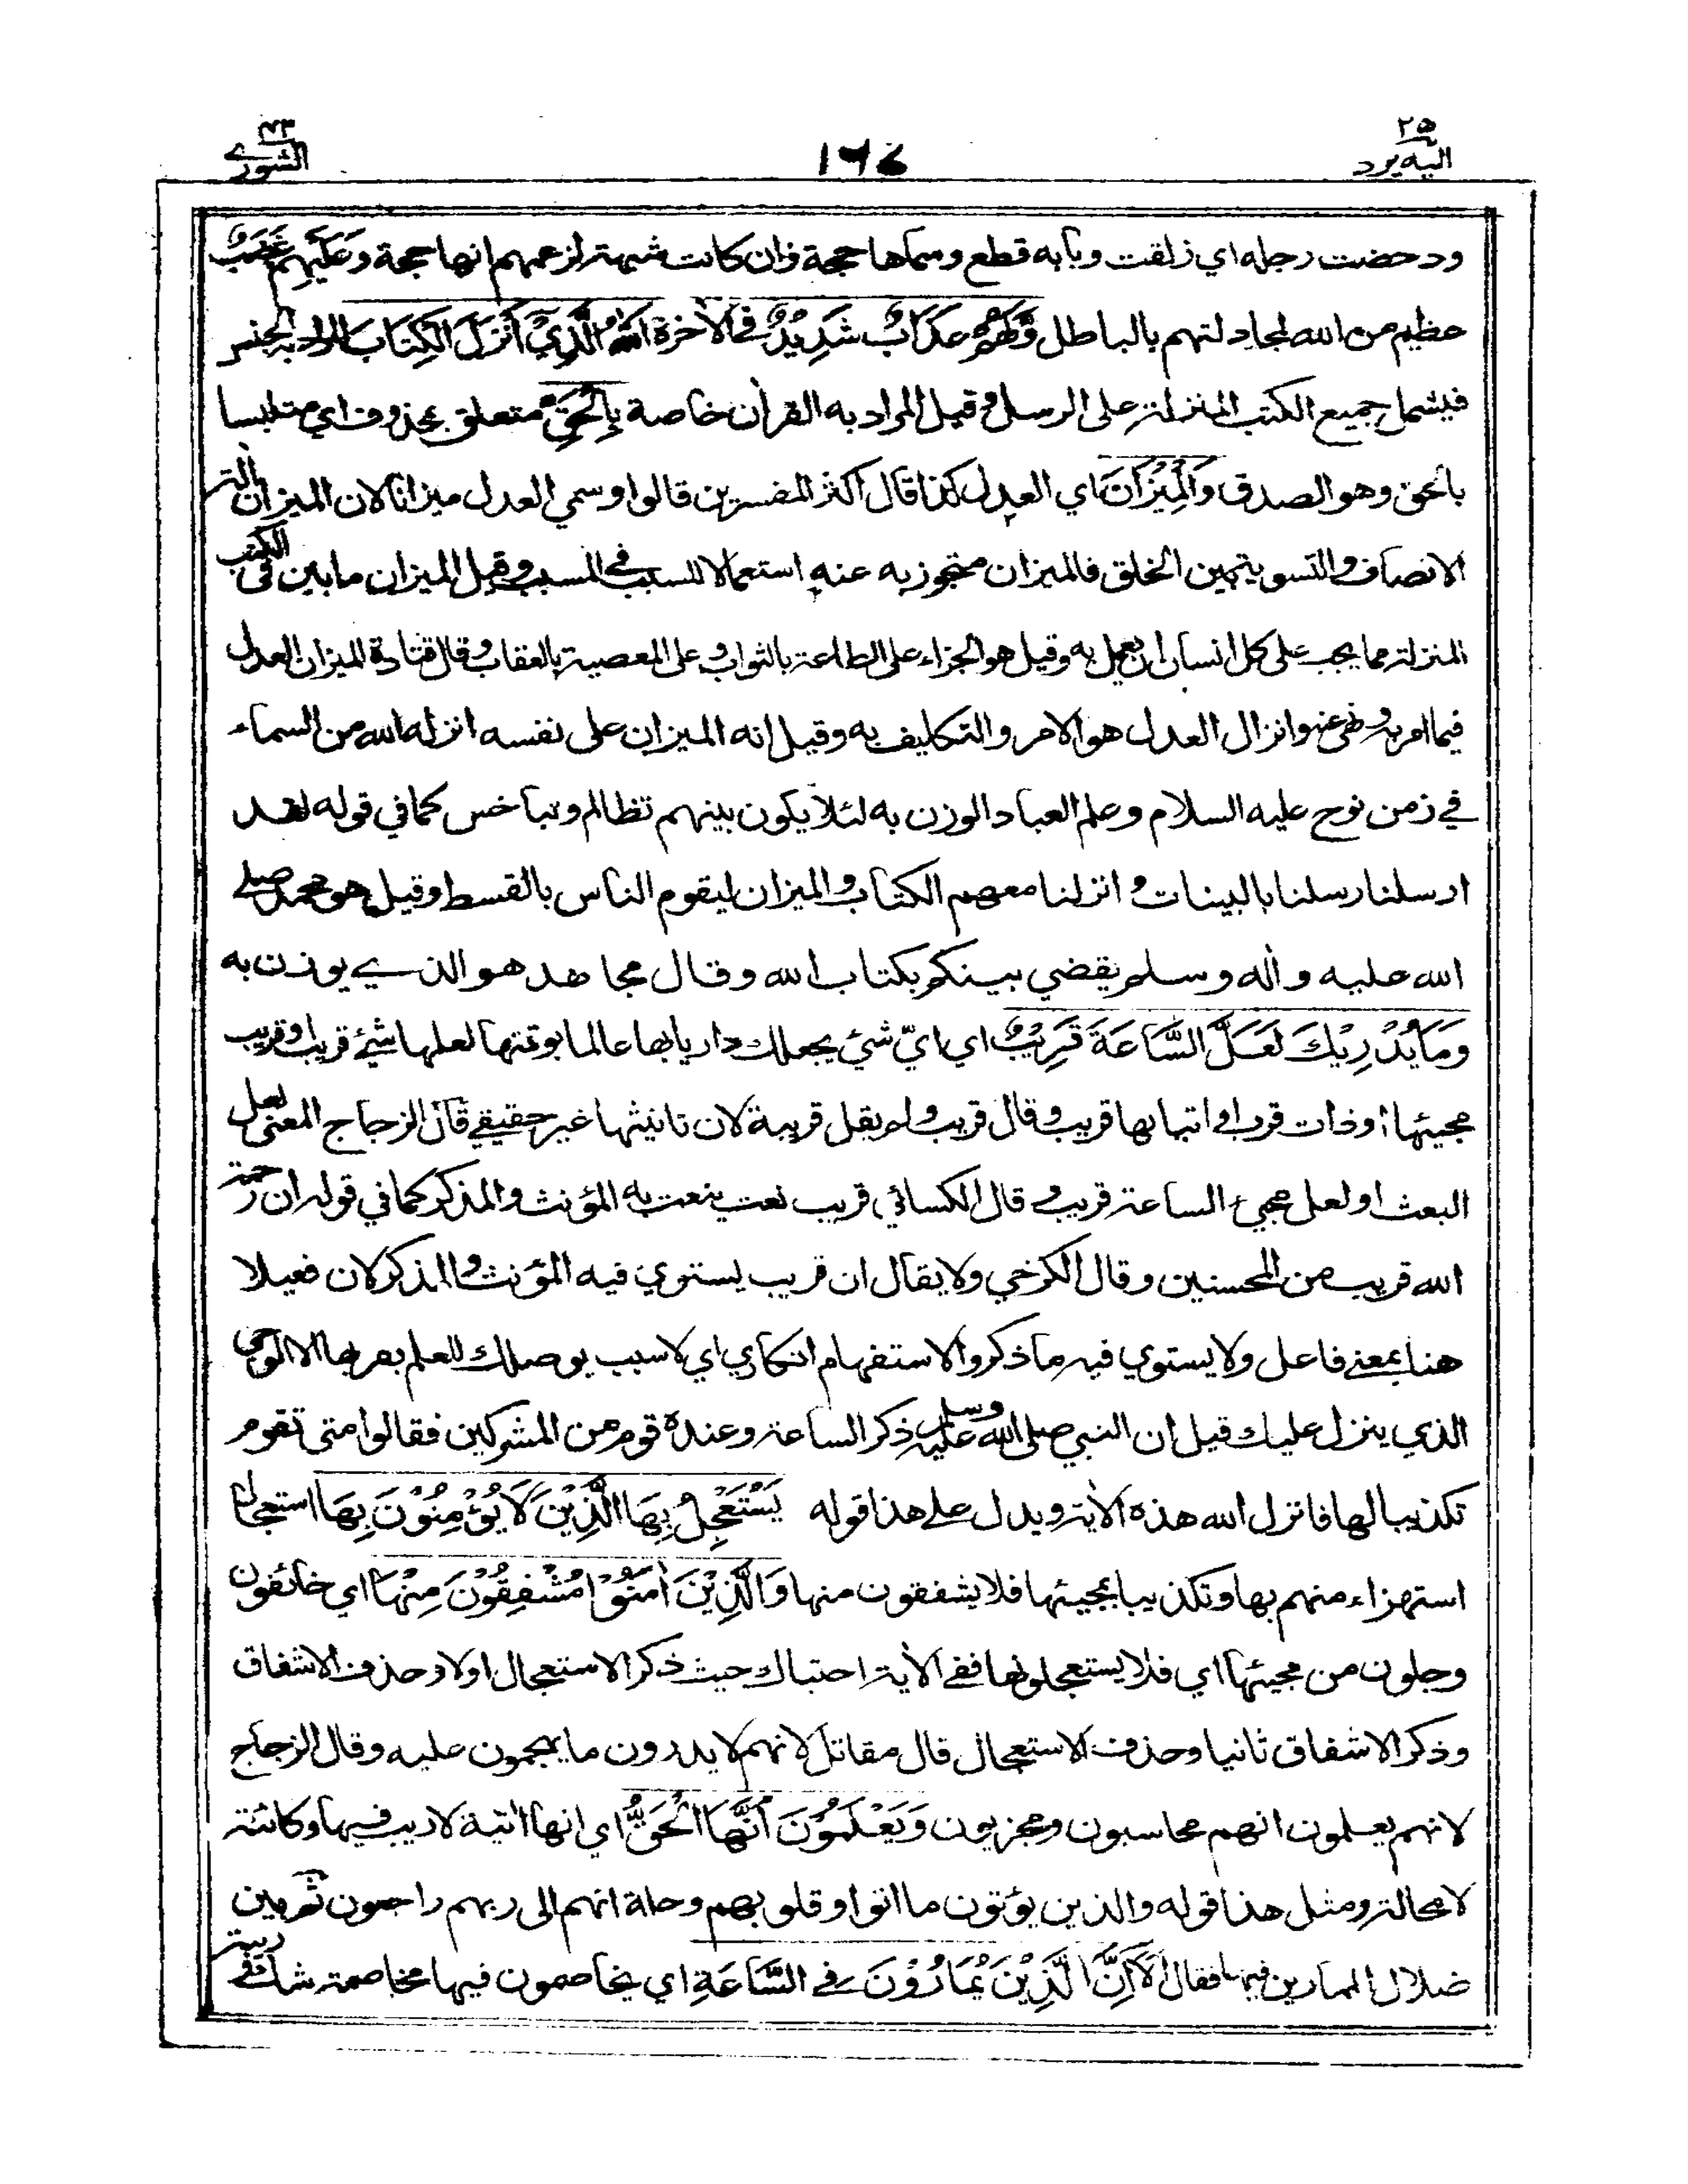 ٢٥
اليه يرد
١٩٤
٤٢
الشورى
ودحضت رجله اي زلقت وبابه قطع وسماها حجة وان كانت شبهة لزعمهم انها حجة وَعَلَيْهِمْ غَضَبٌ
عظيم من الله لمجادلتهم بالباطل وَّلَهُمْ عَذَابٌ شَدِيْدٌ في الاٰخرة اَللّٰهُ الَّذِيْ اَنْزَلَ الْكِتَابَ المراد به الجنس
فيشمل جميع الكتب المنزلة على الرسل وقيل المراد به القراٰن خاصة بِالْحَقِّ متعلق بمحذوف اي متلبسا
بالحق وهو الصدق وَالْمِيْزَانَ اي العدل كذا قال اكثر المفسرين قالوا وسمي العدل ميزانا لان الميزان اٰلة
الانصاف والتسوية بين الخلق فالميزان متجوز به عنه استعمالا للسبب في المسبب وقيل الميزان ما بين في الكتب
المنزلة مما يجب على كل انسان ان يعمل به وقيل هو الجزاء على الطاعة بالثواب وعلى المعصية بالعقاب وقال قتادة الميزان العدل
فيما امر به ونهى عنه وانزال العدل هو الامر والتكليف به وقيل انه الميزان على نفسه انزله الله من السماء
في زمن نوح عليه السلام وعلم العباد الوزن به لئلا يكون بينهم تظالم وتباخس كما في قوله لقد
ارسلنا رسلنا بالبينات وانزلنا معهم الكتاب والميزان ليقوم الناس بالقسط وقيل هو محمد صلى
الله عليه واٰله وسلم يقضي بينكم بكتاب الله وقال مجاهد هو الذي يوزن به
وَمَا يُدْرِيْكَ لَعَلَّ السَّاعَةَ قَرِيْبٌ اي ايّ شيء يجعلك داريا بها عالما بوقتها لعلها شيء قريب او قريب
مجيئها او ذات قرب او اتيانها قريب وقال قريب ولم يقل قريبة لان تانيثها غير حقيقي قال الزجاج المعنى لعل
البعث او لعل مجيء الساعة قريب وقال الكسائي قريب نعت ينعت به المؤنث والمذكر كما في قوله ان رحمة
الله قريب من المحسنين وقال الكرخي ولا يقال ان قريب يستوي فيه المؤنث والمذكر لان فعيلا
هنا بمعنى فاعل ولا يستوي فيه ما ذكر والاستفهام انكاري اي لا سبب يوصلك للعلم بقربها الا الوحي
الذي ينزل عليك قيل ان النبي صلى الله عليه وسلم ذكر الساعة وعنده قوم من المشركين فقالوا متى تقوم
تكذيبا لها فانزل الله هذه الاٰية ويدل على هذا قوله يَسْتَعْجِلُ بِهَا الَّذِيْنَ لَا يُؤْمِنُوْنَ بِهَا استعجال
استهزاء منهم بها وتكذيبا بمجيئها فلا يشفقون منها وَالَّذِيْنَ اٰمَنُوْا مُشْفِقُوْنَ مِنْهَا اي خائفون
وجلون من مجيئها اي فلا يستعجلونها ففي الاٰية احتباك حيث ذكر الاستعجال اولا وحذف الاشفاق
وذكر الاشفاق ثانيا وحذف الاستعجال قال مقاتل لانهم لا يدرون ما يهجمون عليه وقال الزجاج
لانهم يعلمون انهم محاسبون ومجزيون وَيَعْلَمُوْنَ اَنَّهَا الْحَقُّ اي انها اٰتية لا ريب فيها وكائنة
لا محالة ومثل هذا قوله والذين يؤتون ما اتوا وقلوبهم وجلة انهم الى ربهم راجعون ثم بين
ضلال الممارين فيها فقال اَلَا اِنَّ الَّذِيْنَ يُمَارُوْنَ فِي السَّاعَةِ اي يخاصمون فيها مخاصمة شك وريبة